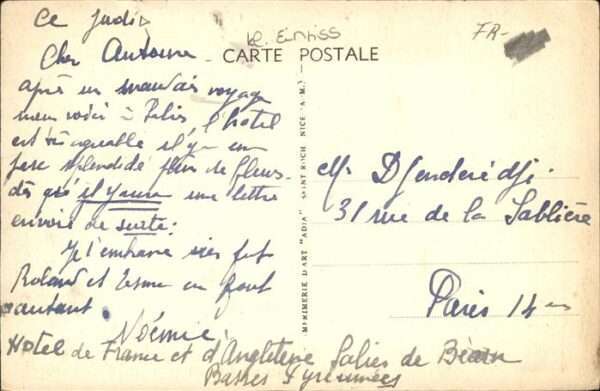 Ce Jeudi
Cher Antoine
après un mauvais voyage
nous voici à Salies l'hôtel
est très agréable il y a un
parc splendide plein de fleurs.
dès qu'il y aura une lettre
envoie de suite.
Je t'embrasse très fort
Roland et en font
autant.
Noémie.
Hotel de France et d'Angleterre Salies de Béarn
Basses Pyrennées
FR-
CARTE POSTALE
IMPRIMERIE D'ART "ADIA" SAINT ROCH NICE (A.-M.)
Mr Djendérédji
31 rue de la Sablière
Paris 14em